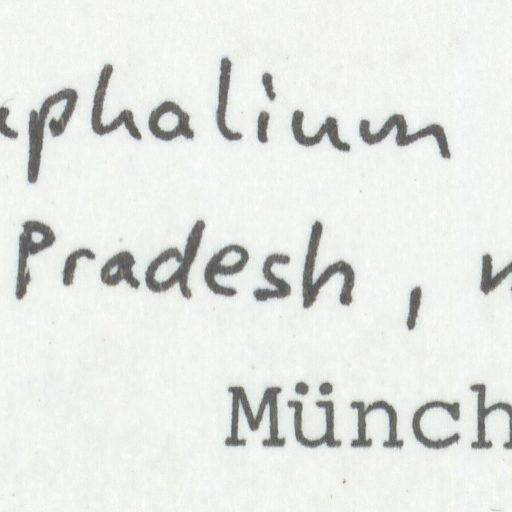 aphalium
Pradesh, n
Münch